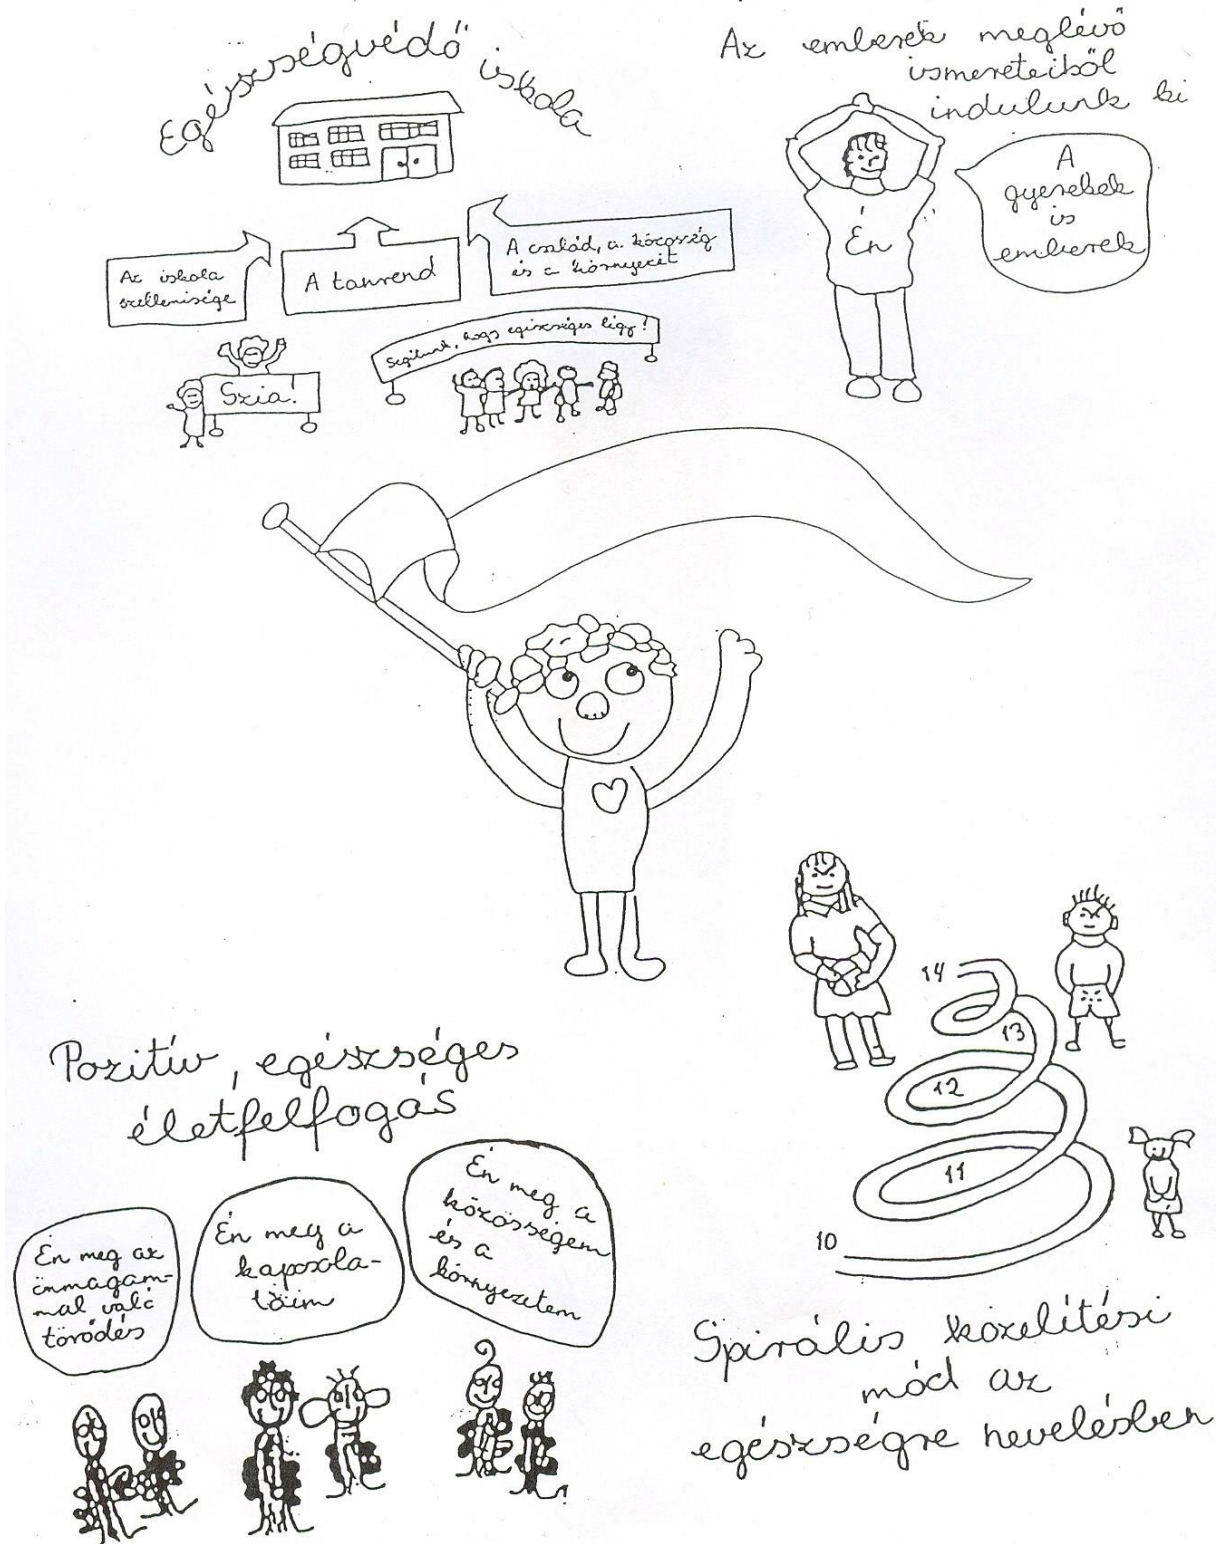 Egészségvédő iskola
Az iskola
szellemisége
A tanrend
A család, a közösség
és a környezet
Szia!
Segítünk, hogy egészséges légy!
Az emberek meglévő
ismereteiből
indulunk ki
Én
A
gyerekek
is
emberek
Pozitív, egészséges
életfelfogás
Én meg az
önmagam-
mal való
törődés
Én meg a
kapcsola-
táim
Én meg a
közösségem
és a
környezetem
14
13
12
11
10
Spirális közelítési
mód az
egészségre nevelésben